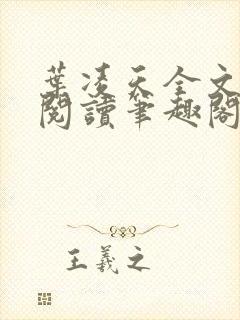 葉凌天全文
閱讀筆趣閣
王羲之